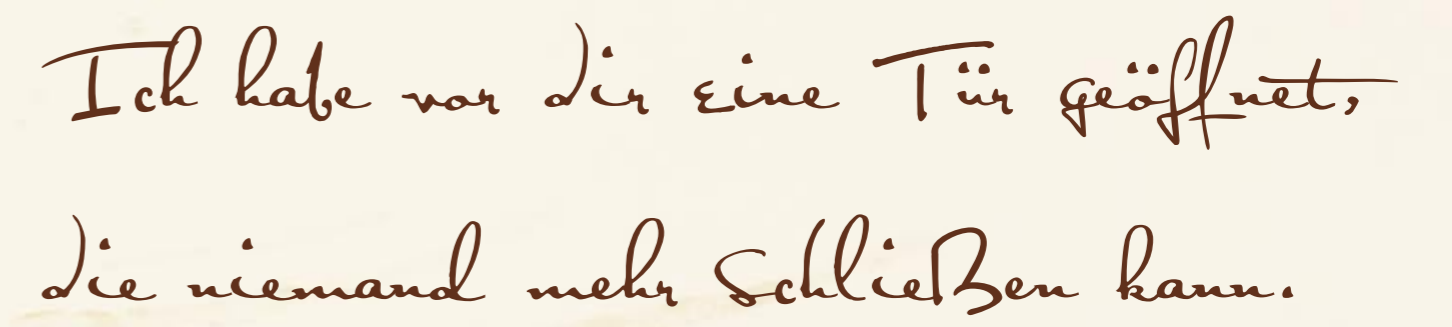 Ich habe vor dir eine Tür geöffnet,
die niemand mehr schließen kann.